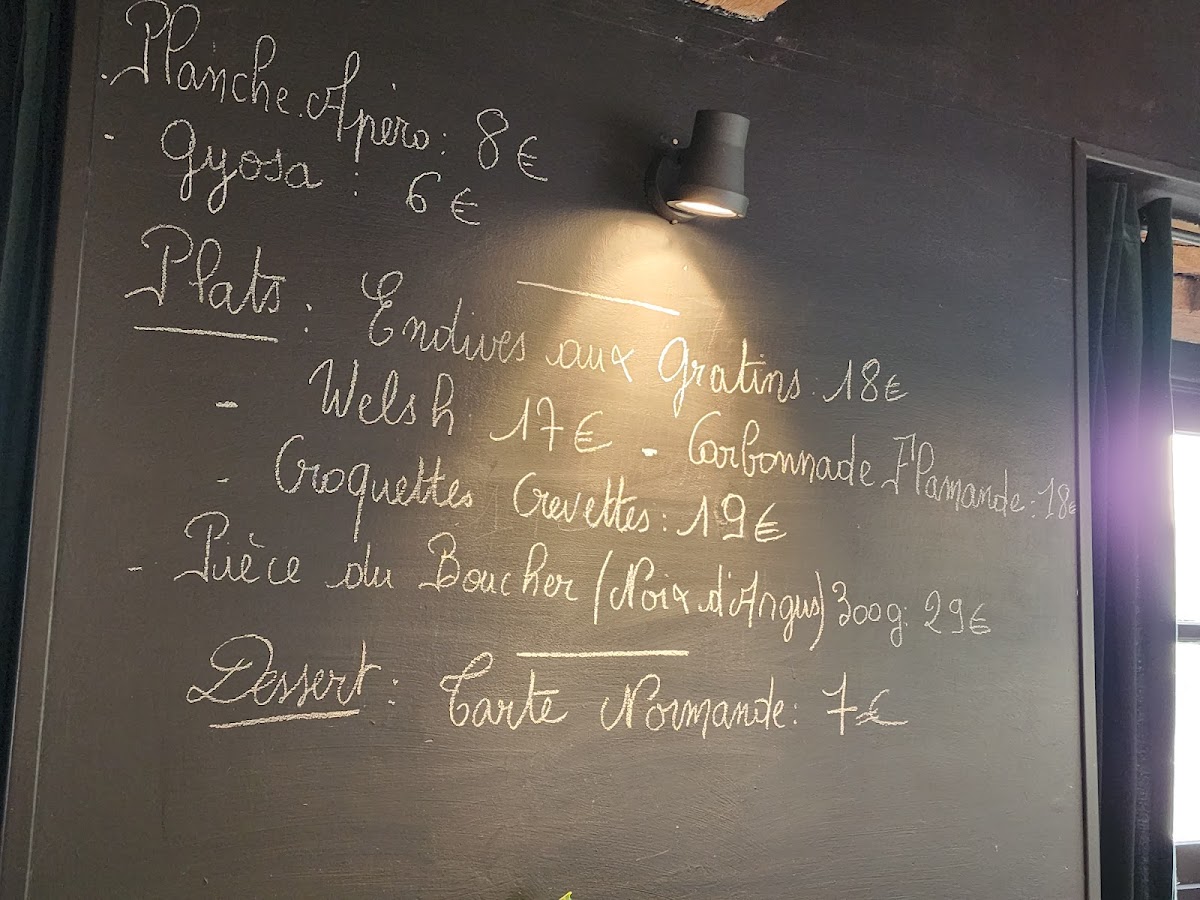 - Planche Apéro : 8€
- Gyosa : 6€
Plats : Endives aux Gratins : 18€
- Welsh : 17€ - Carbonnade Flamande : 18€
- Croquettes Crevettes : 19€
- Pièce du Boucher (Noix d'Angus) 300g : 29€
Dessert : Tarte Normande : 7€